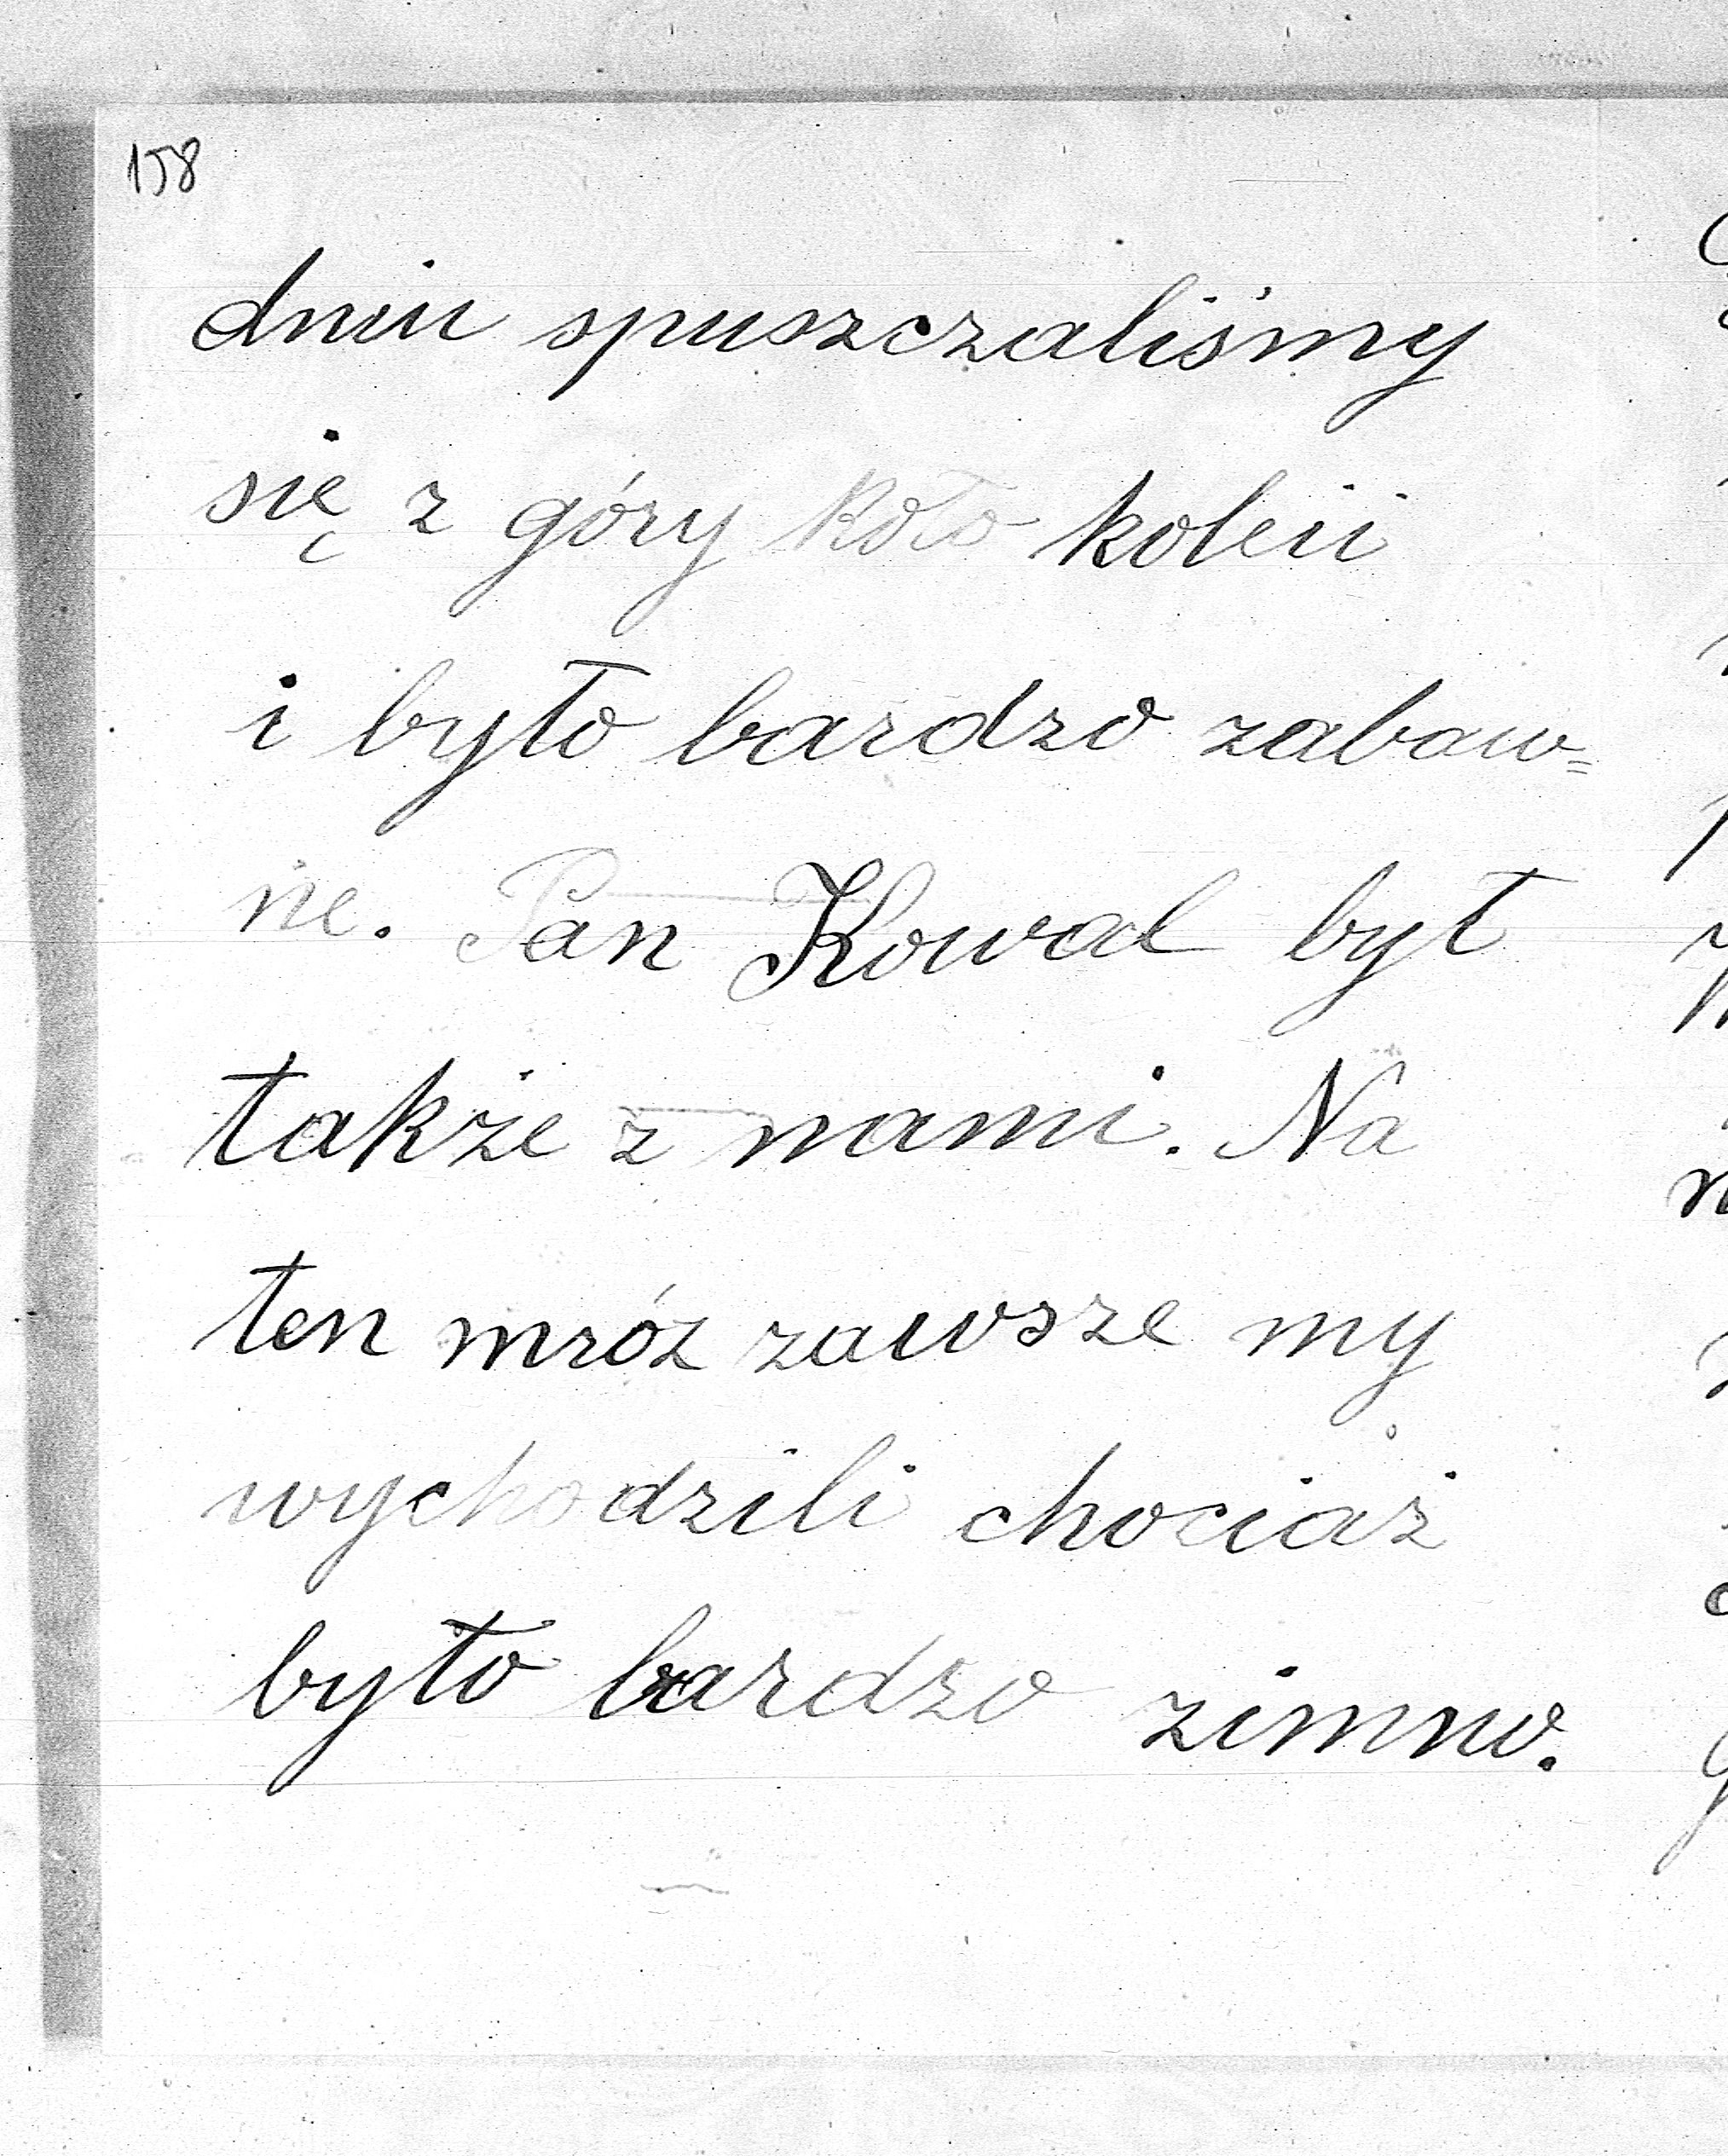 158
dniu spuszczaliśmy
się z góry koło koleii
i było bardzo zabaw=
ne. Pan Kowal był
także z nami. Na
ten mróz zawsze my
wychodzili chociaż
było bardzo zimno.